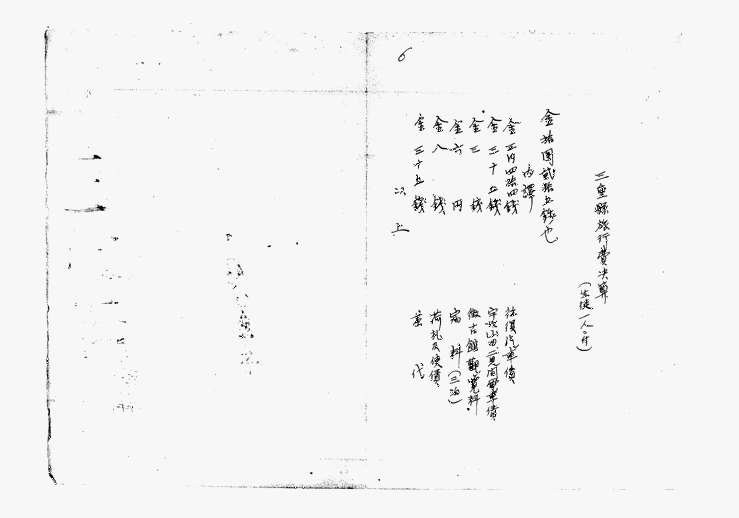 6
三重縣旅行費決算
(生徒一人ニ付)
金拾圓貳拾五錢也
内譯
金三円四拾四錢 往復汽車賃
金三十五錢 宇治山田二見間電車賃
金三錢 徴古館觀覽料
金六円 宿料(三泊)
金八錢 荷札及使賃
金三十五錢 茶代
以上